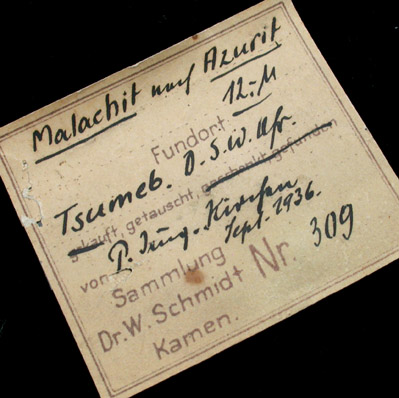 Malachit nach Azurit
12.-M
Fundort
Tsumeb. D.S.W. Afr.
gekauft, getauscht, geschenkt, gefunden
von P. Jung. Kirchen
Sept. 1936.
Sammlung Nr. 309
Dr. W. Schmidt
Kamen.